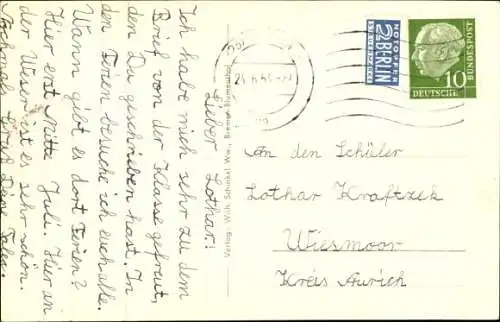 Lieber Lothar!
Ich habe mich sehr zu dem
Brief von der Klasse gefreut,
den Du geschrieben hast. In
den Ferien besuche ich euch alle.
Wann gibt es dort Ferien?
Hier erst Mitte Juli. Hier an
der Weser ist es sehr schön.
Nochmals Gruß Deine
Verlag Wilh. Schinkel
NOTOPFER
2 BERLIN
STEUERMARKE
10
DEUTSCHE
BUNDESPOST
An den Schüler
Lothar Kraftzek
Wiesmoor
Kreis Aurich